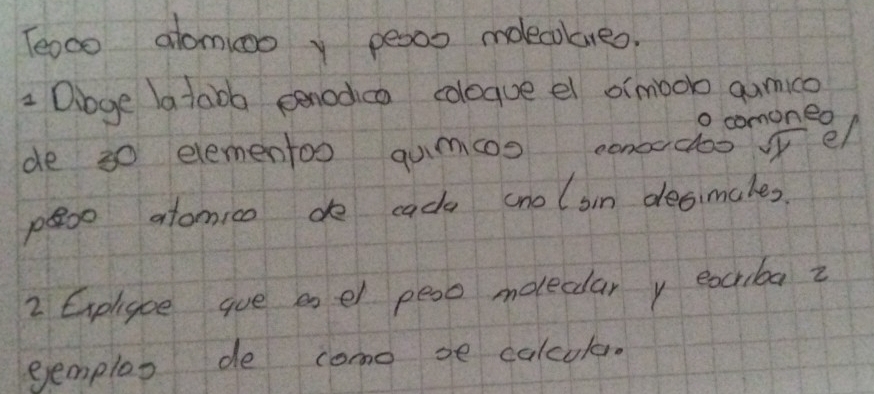 Pesos atomicos y pesos moleculares.
1 Dibuje la tabla periodica coloque el simbolo quimico
o comones
de 30 elementos quimicos conocidos y el
peso atomico de cada uno (sin desimales.
2 Explique que es el peso molecular y escriba 2
ejemplos de como se calcula.